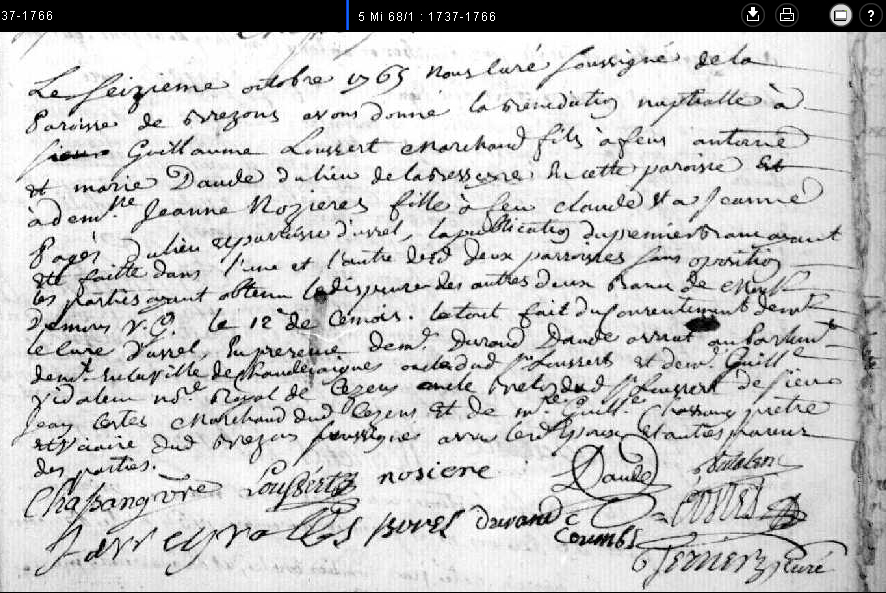 37-1766
5 Mi 68/1 : 1737-1766
Le seizieme octobre 1765 nous curé soussigné de la
paroisse de brezons avons donné la benediction nuptialle à
sieur Guillaume Loussert marchand fils à feus antoine
et marie Daude du lieu de la bessere en cette paroisse et
à dem.lle Jeanne Nozieres fille à feu claude et a Jeanne
Pagès du lieu et paroisse d'ussel, la publication du premier banc ayant
été faitte dans l'une et l'autre desd deux parroisses sans oposition
les parties ayant obtenu le dispense des autres deux bancs de
V.G. le 12e de ce mois. le tout fait du consentement de
le curé d'ussel, en presence de m.e Durand Daude avocat au parlem.t
dem.t en la ville de chaudesaigues oncle dud s.r Loussert et de m.e Guill.e
vidalenc no.re Royal de Cezens oncle dud s.r Loussert de sieur
Jean Costes marchand dud Cezens et de m.re Guill.e Chassang prêtre
et vicaire dud brezons soussignes avec les Epoux et autres
des parties.
Chassang vre Loussert nosiere Daude vidalenc
Costes
Borel Durand Coumbs
Ternier curé